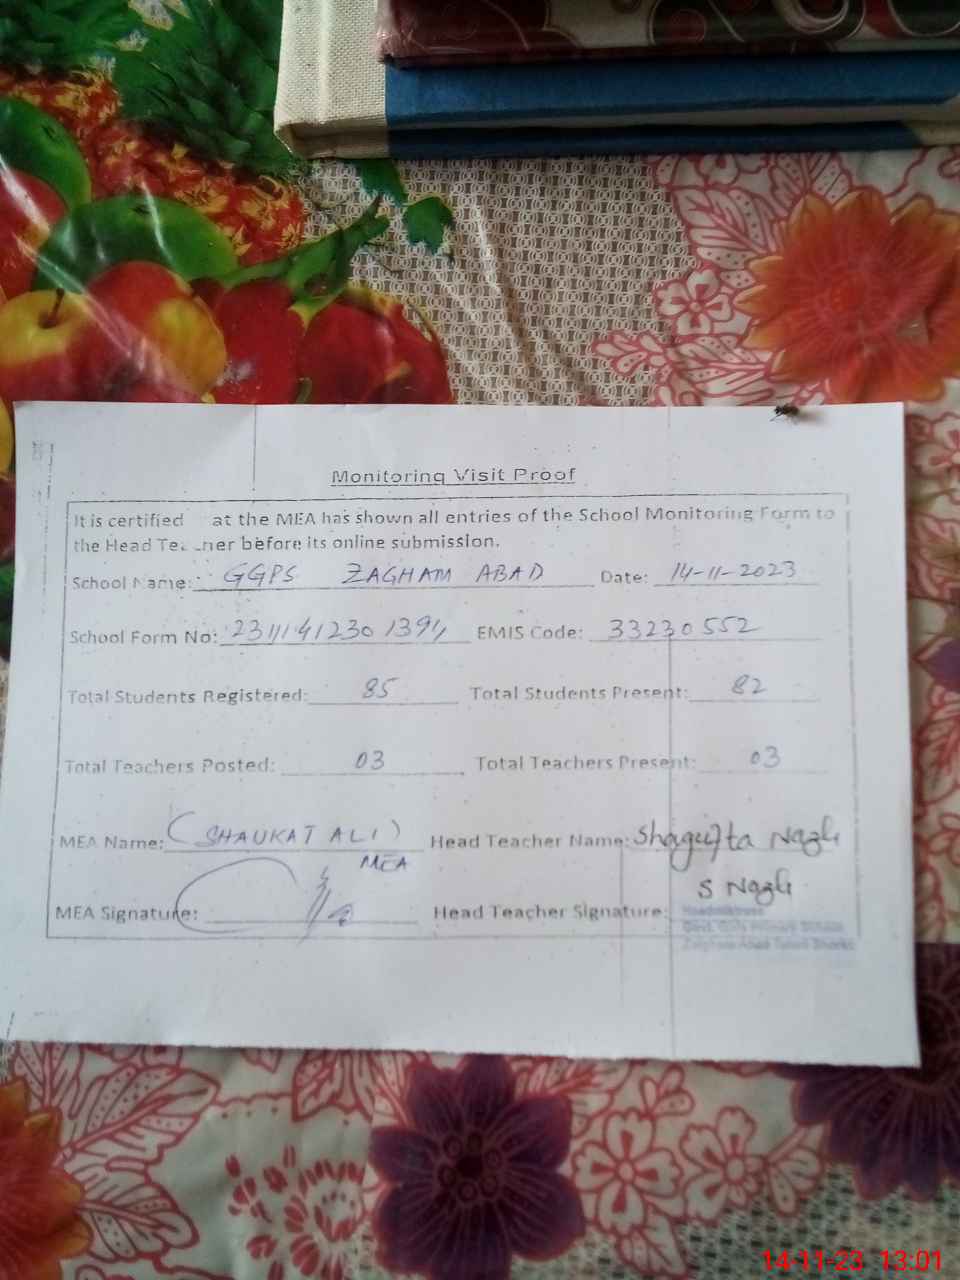 Monitoring Visit Proof
It is certified at the MEA has shown all entries of the School Monitoring Form to
the Head Teacher before its online submission.
School Name: GGPS ZAGHAM ABAD Date: 14-11-2023
School Form No: EMIS Code: 33230552
Total Students Registered: 85 Total Students Present: 82
Total Teachers Posted: 03 Total Teachers Present: 03
MEA Name: (SHAUKAT ALI) Head Teacher Name: Shagufta Nazli
MEA S Nazli
MEA Signature: Head Teacher Signature:
Headmistress
Govt. Girls Primary School
14-11-23 13:01